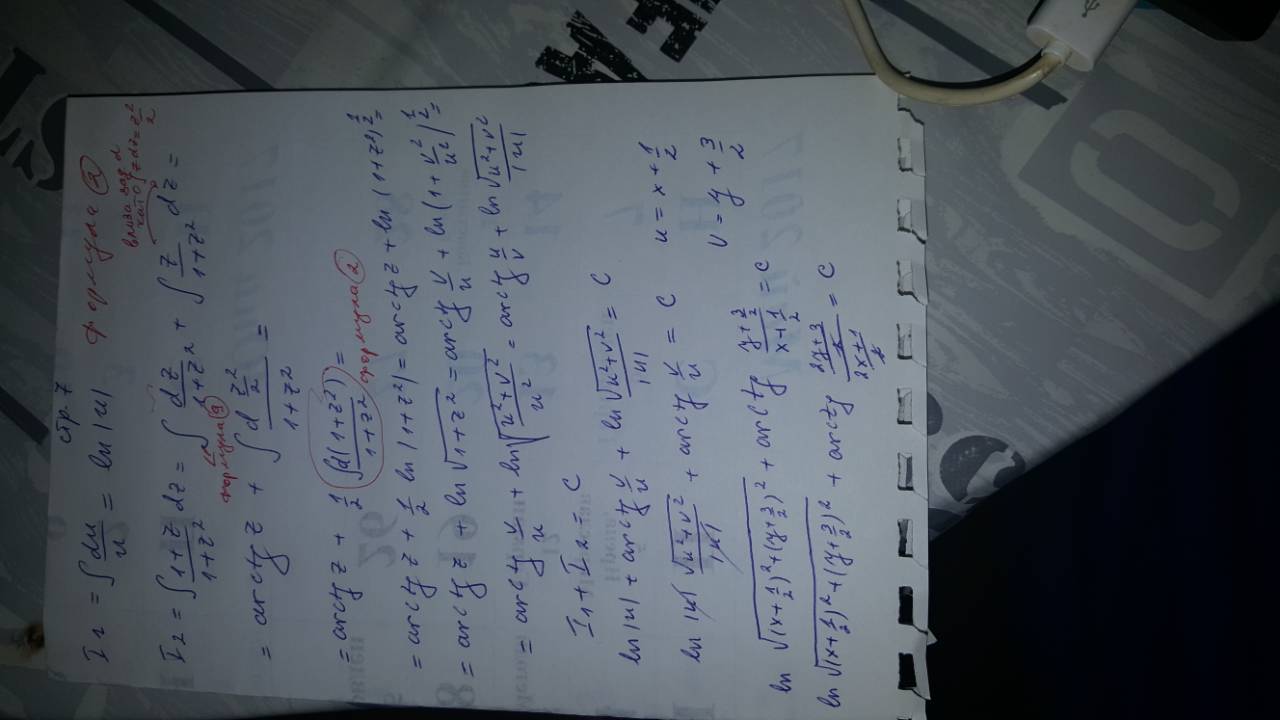 стр. 7
I₁ = ∫ du/u = ln |u| Формула ②
влиза зад d
като ∫ z dz = z²/2
I₂ = ∫ (1+z)/(1+z²) dz = ∫ dz/(1+z²) + ∫ z/(1+z²) dz =
формула ⑨
= arctg z + ∫ d (z²/2)/(1+z²) =
= arctg z + 1/2 ∫ d(1+z²)/(1+z²) =
формула ②
= arctg z + 1/2 ln |1+z²| = arctg z + ln (1+z²)^(1/2) =
= arctg z + ln √(1+z²) = arctg v/u + ln (1 + v²/u²)^(1/2) =
= arctg v/u + ln √((u²+v²)/u²) = arctg u/v + ln √(u²+v²)/|u|
I₁ + I₂ = C
ln |u| + arctg v/u + ln √(u²+v²)/|u| = C
ln |u| √(u²+v²)/|u| + arctg v/u = C u = x + 1/2
v = y + 3/2
ln √((x+1/2)²+(y+3/2)²) + arctg (y+3/2)/(x+1/2) = C
ln √((x+1/2)²+(y+3/2)²) + arctg ((2y+3)/2)/((2x+1)/2) = C